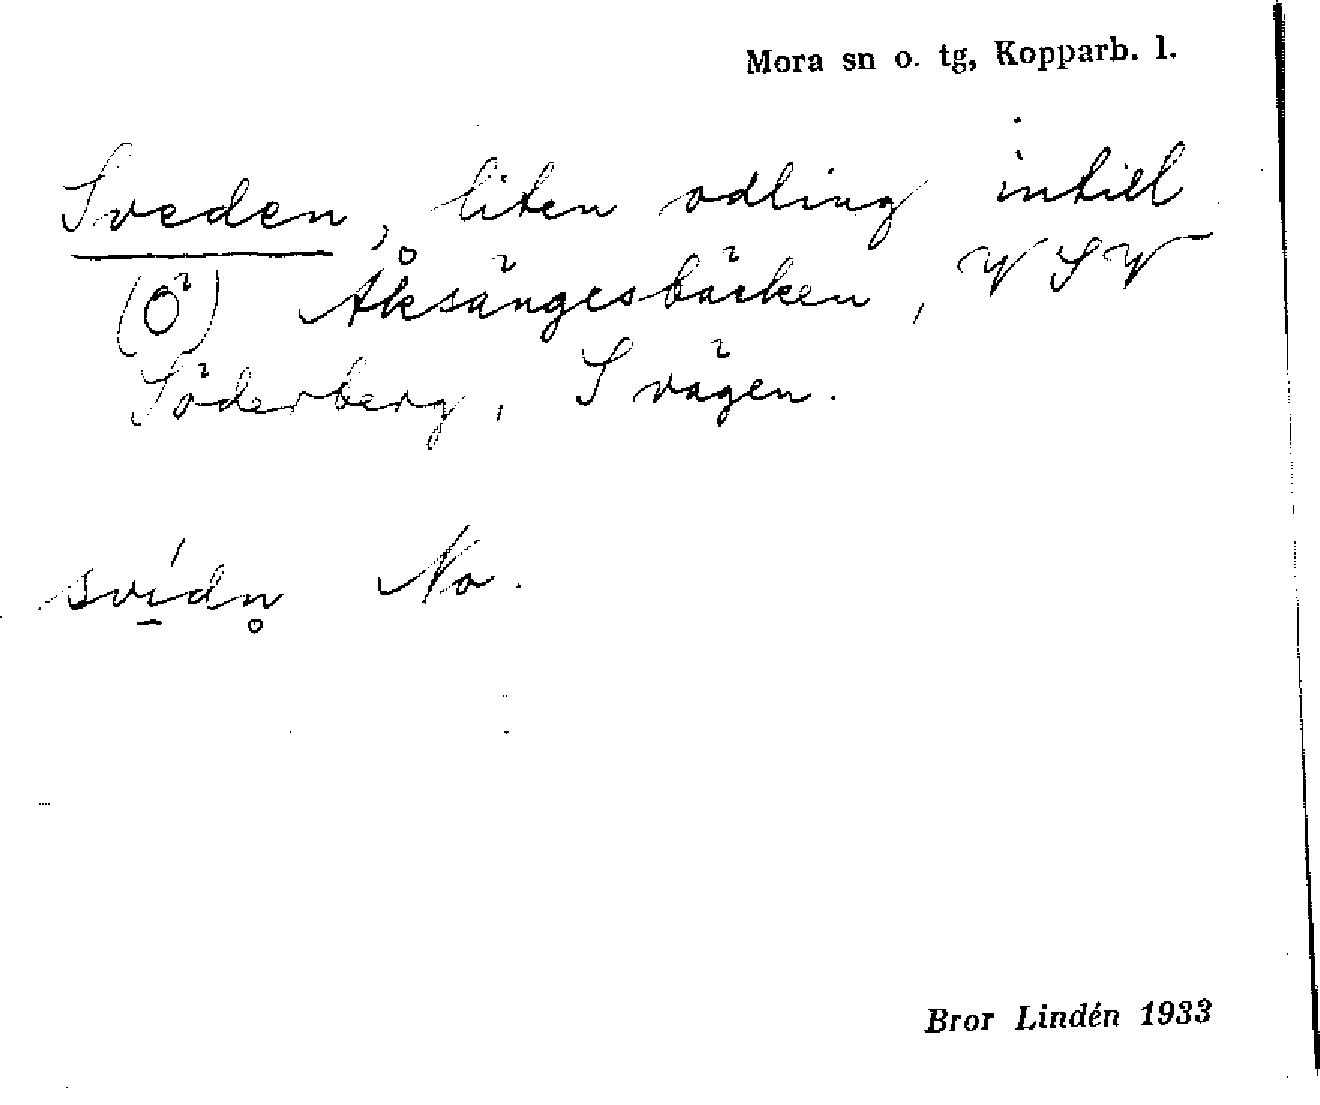 Mora sn o. tg, Kopparb. l.
Sveden, liten odling intill
(Ö) Åksängesbäcken, VSV
Söderberg, S vägen.
sví̱dn̥ No.
Bror Lindén 1933